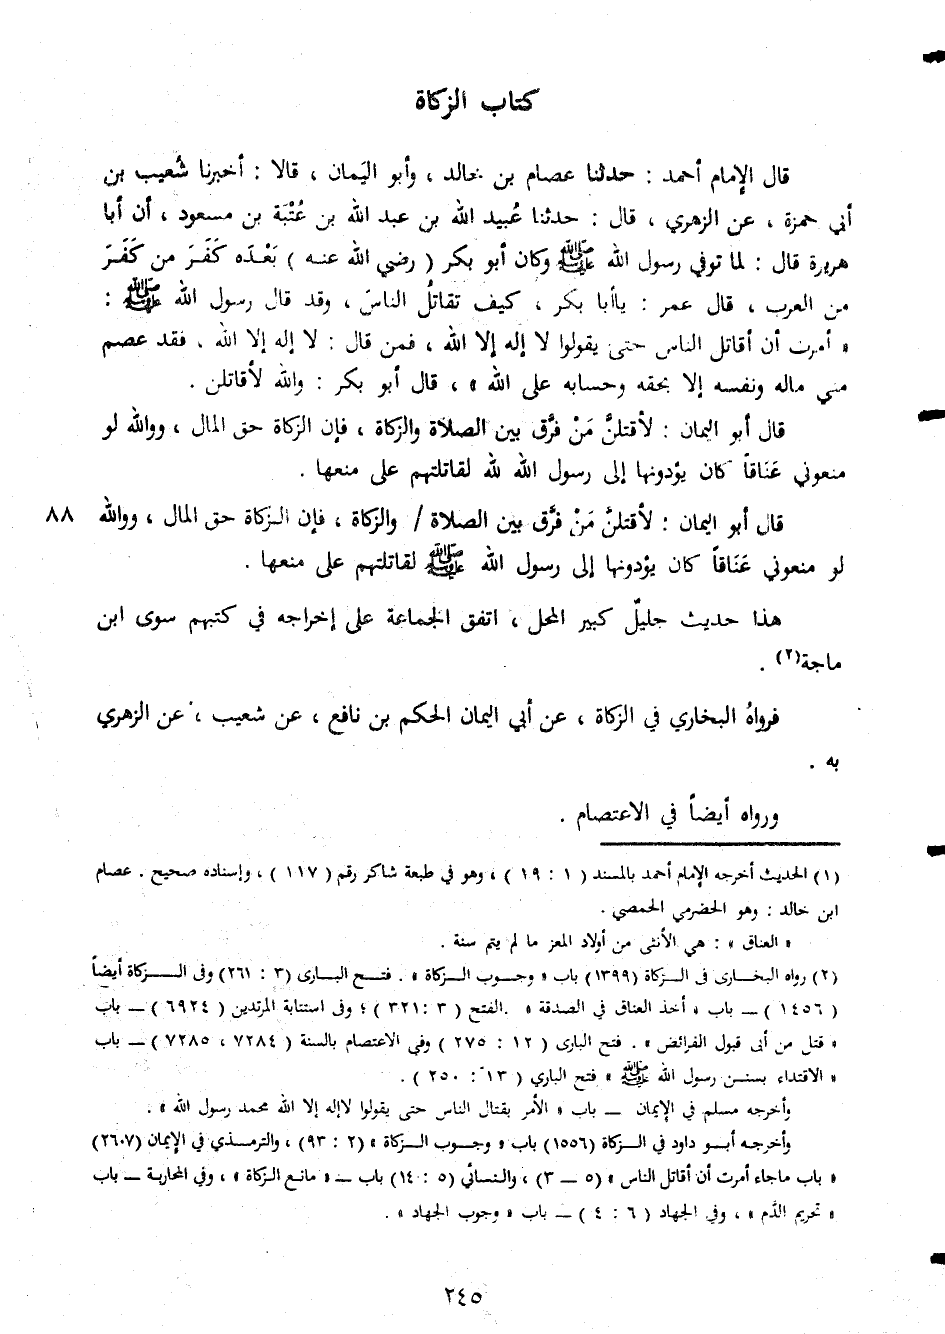 كتاب الزكاة
قال الإمام أحمد : حدثنا عصام بن خالد ، وأبو اليَمان ، قالا : أخبرنا شُعيب بن
أبي حمزة ، عن الزهري ، قال : حدثنا عُبيد الله بن عبد الله بن عُتْبَة بن مسعود ، أن أبا
هريرة قال : لما توفي رسول الله ﷺ وكان أبو بكر ( رضي الله عنه ) بَعْدَه كَفَرَ من كَفَرَ
من العرب ، قال عمر : ياأبا بكر ، كيف تقاتلُ الناسَ ، وقد قال رسول الله ﷺ :
« أمرت أن أقاتل الناس حتى يقولوا لا إله إلا الله ، فمن قال : لا إله إلا الله . فقد عصم
مني ماله ونفسه إلا بحقه وحسابه على الله » ، قال أبو بكر : والله لأقاتلن .
قال أبو اليمان : لأقتلنَّ مَنْ فرَّق بين الصلاة والزكاة ، فإن الزكاة حق المال ، ووالله لو
منعوني عَنَاقاً كان يؤدونها إلى رسول الله لله لقاتلتهم على منعها .
قال أبو اليمان : لأقتلنَّ مَنْ فرَّق بين الصلاة / والزكاة ، فإن الزكاة حق المال ، ووالله ٨٨
لو منعوني عَنَاقاً كان يؤدونها إلى رسول الله ﷺ لقاتلتهم على منعها .
هذا حديث جليلٌ كبير المحل ، اتفق الجماعة على إخراجه في كتبهم سوى ابن
ماجة(٢) .
فرواهُ البخاري في الزكاة ، عن أبي اليمان الحكم بن نافع ، عن شعيب ، عن الزهري
به .
ورواه أيضاً في الاعتصام .
(١) الحديث أخرجه الإمام أحمد بالمسند ( ١ : ١٩ ) ، وهو في طبعة شاكر رقم ( ١١٧ ) ، وإسناده صحيح . عصام
ابن خالد : وهو الحضرمي الحمصي .
« العناق » : هي الأنثى من أولاد المعز ما لم يتم سنة .
(٢) رواه البخارى فى الزكاة (١٣٩٩) باب « وجوب الزكاة » . فتح البارى (٣ : ٢٦١) وفى الزكاة أيضاً
( ١٤٥٦ ) — باب « أخذ العناق في الصدقة » .الفتح ( ٣ :٣٢١ ) ؛ وفى استتابة المرتدين ( ٦٩٢٤ ) — باب
« قتل من أبى قبول الفرائض » . فتح البارى ( ١٢ : ٢٧٥ ) وفي الاعتصام بالسنة ( ٧٢٨٤ ، ٧٢٨٥ ) — باب
« الاقتداء بسنن رسول الله ﷺ » فتح الباري ( ١٣ : ٢٥٠ ) .
وأخرجه مسلم في الإيمان — باب « الأمر بقتال الناس حتى يقولوا لاإله إلا الله محمد رسول الله » .
وأخرجه أبو داود في الزكاة (١٥٥٦) باب « وجوب الزكاة » (٢ : ٩٣) ، والترمذي في الإيمان (٢٦٠٧)
« باب ماجاء أمرت أن أقاتل الناس » (٥ – ٣) ، والنسائي (٥ : ١٤) باب — « مانع الزكاة » ، وفي المحاربة — باب
« تحريم الدَّم » ، وفي الجهاد ( ٦ : ٤ ) — باب « وجوب الجهاد » .
٢٤٥